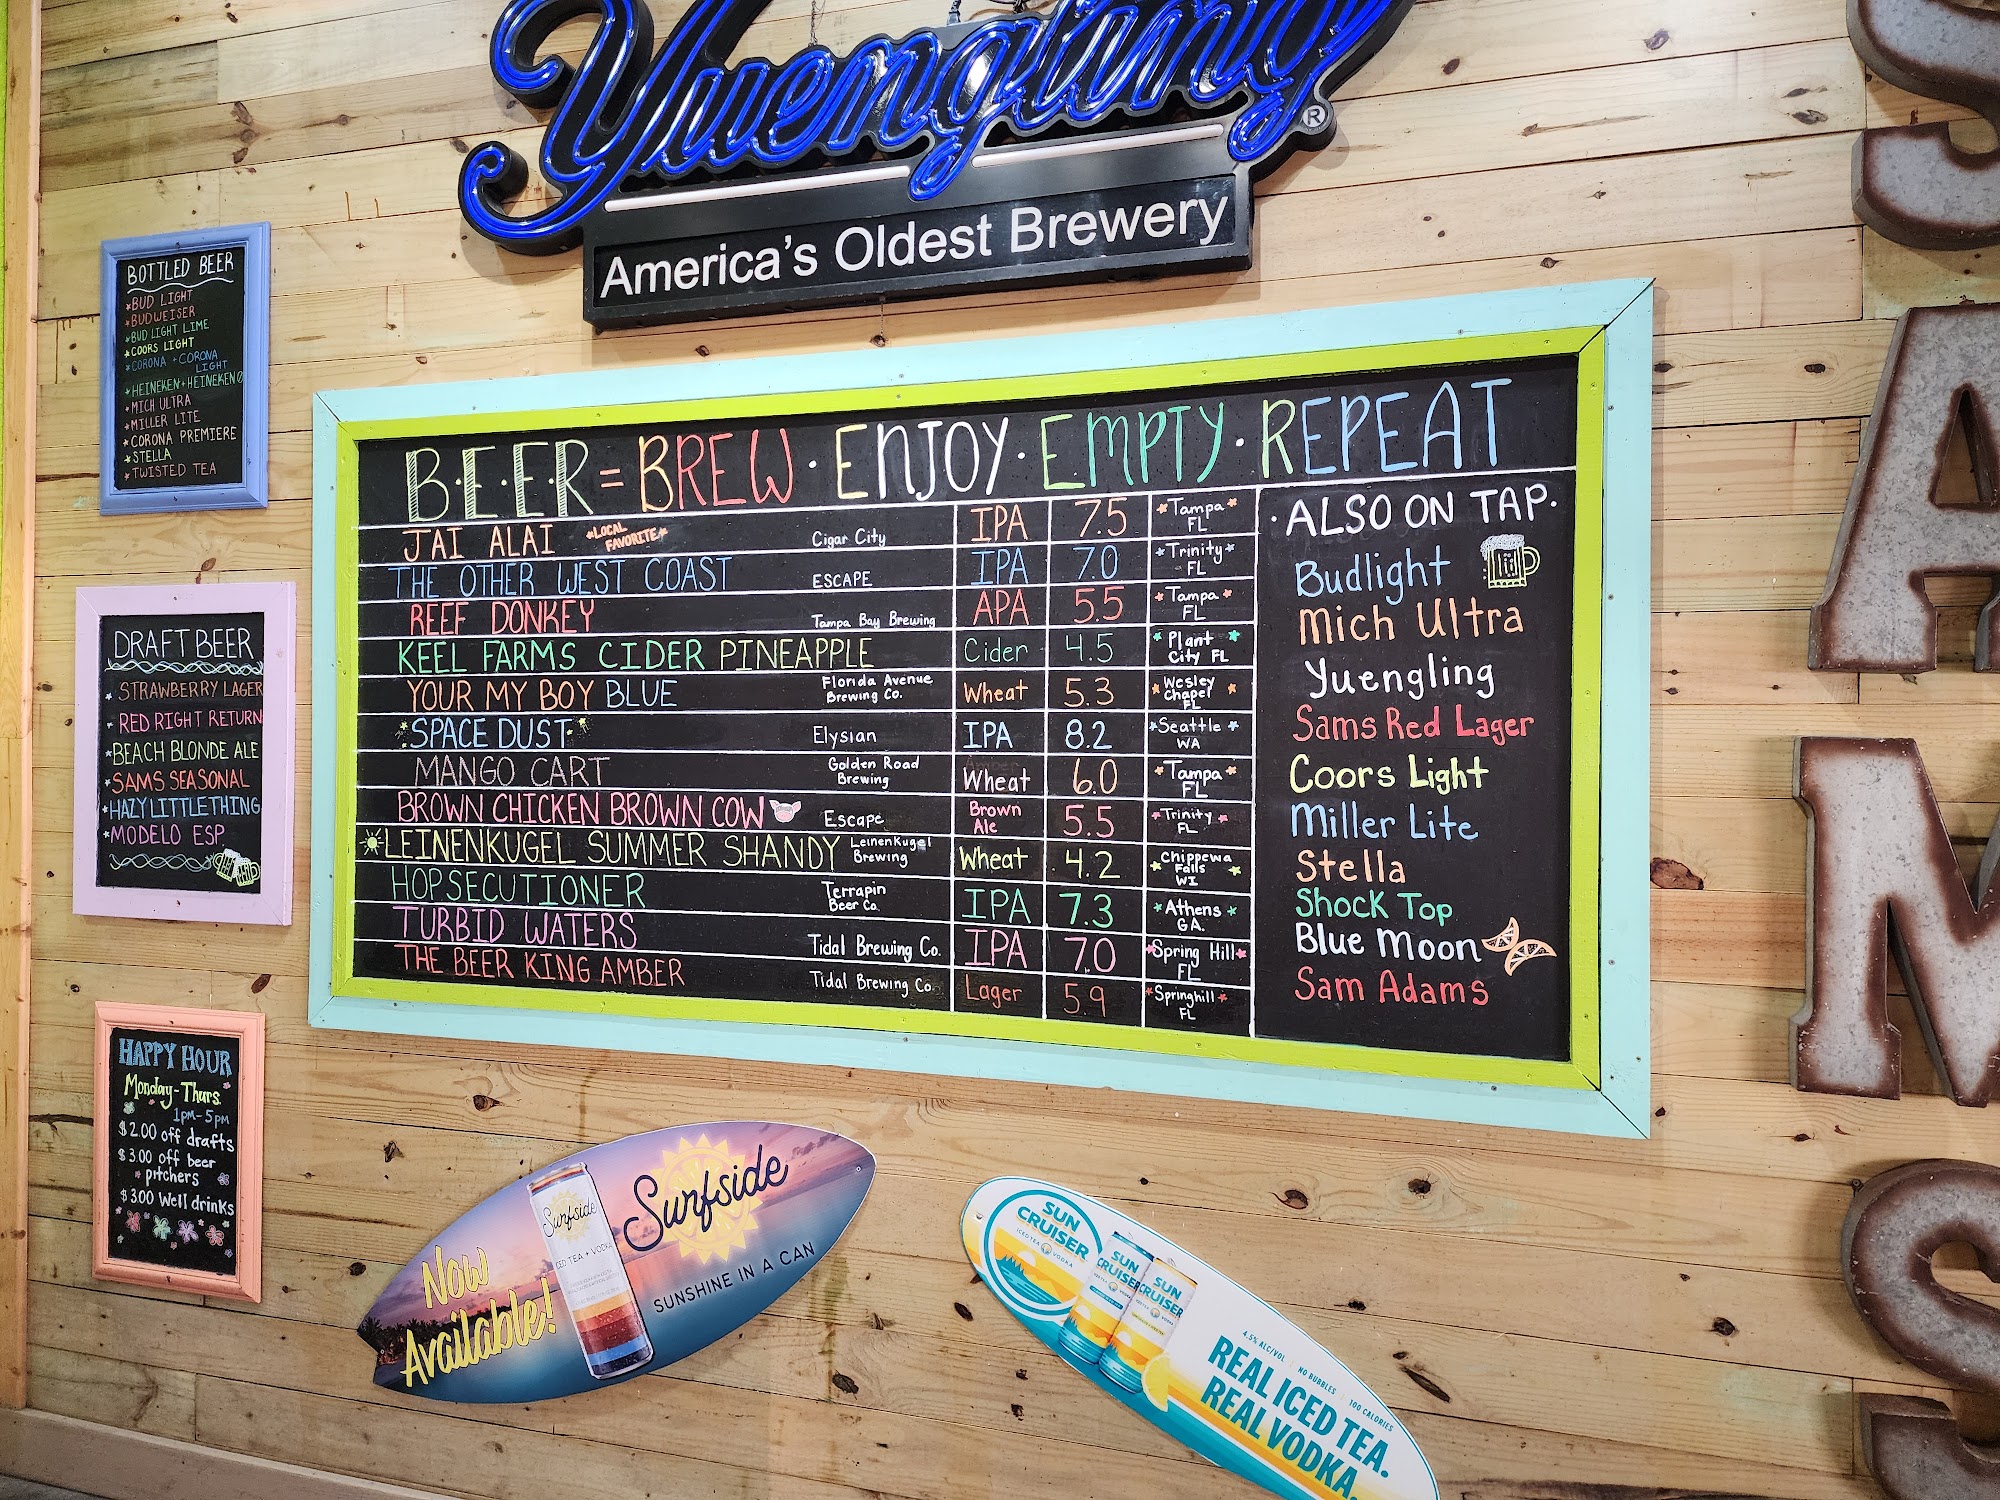 Yuengling®
America's Oldest Brewery
BOTTLED BEER
*BUD LIGHT
*BUDWEISER
*BUD LIGHT LIME
*COORS LIGHT
*CORONA + CORONA
LIGHT
*HEINEKEN + HEINEKEN 0
*MICH ULTRA
*MILLER LITE
*CORONA PREMIERE
*STELLA
*TWISTED TEA
DRAFT BEER
*STRAWBERRY LAGER
*RED RIGHT RETURN
*BEACH BLONDE ALE
*SAMS SEASONAL
*HAZY LITTLE THING
*MODELO ESP.
HAPPY HOUR
Monday-Thurs.
1pm-5pm
$2.00 off drafts
$3.00 off beer
pitchers
$3.00 Well drinks
B.E.E.R = BREW · ENJOY · EMPTY · REPEAT
JAI ALAI *LOCAL FAVORITE* Cigar City IPA 7.5 *Tampa* FL
THE OTHER WEST COAST ESCAPE IPA 7.0 *Trinity* FL
REEF DONKEY Tampa Bay Brewing APA 5.5 *Tampa* FL
KEEL FARMS CIDER PINEAPPLE Cider 4.5 *Plant* City FL
YOUR MY BOY BLUE Florida Avenue Brewing Co. Wheat 5.3 *Wesley Chapel* FL
SPACE DUST Elysian IPA 8.2 *Seattle* WA
MANGO CART Golden Road Brewing Wheat 6.0 *Tampa* FL
BROWN CHICKEN BROWN COW Escape Brown Ale 5.5 *Trinity* FL
LEINENKUGEL SUMMER SHANDY Leinenkugel Brewing Wheat 4.2 *Chippewa Falls* WI
HOPSECUTIONER Terrapin Beer Co. IPA 7.3 *Athens* GA.
TURBID WATERS Tidal Brewing Co. IPA 7.0 *Spring Hill* FL
THE BEER KING AMBER Tidal Brewing Co. Lager 5.9 *Springhill* FL
· ALSO ON TAP ·
Budlight
Mich Ultra
Yuengling
Sams Red Lager
Coors Light
Miller Lite
Stella
Shock Top
Blue Moon
Sam Adams
SAMS
Now
Available!
Surfside
ICED TEA + VODKA
Surfside
SUNSHINE IN A CAN
SUN
CRUISER
ICED TEA VODKA
SUN
CRUISER
SUN
CRUISER
4.5% ALC/VOL NO BUBBLES 100 CALORIES
REAL ICED TEA.
REAL VODKA.